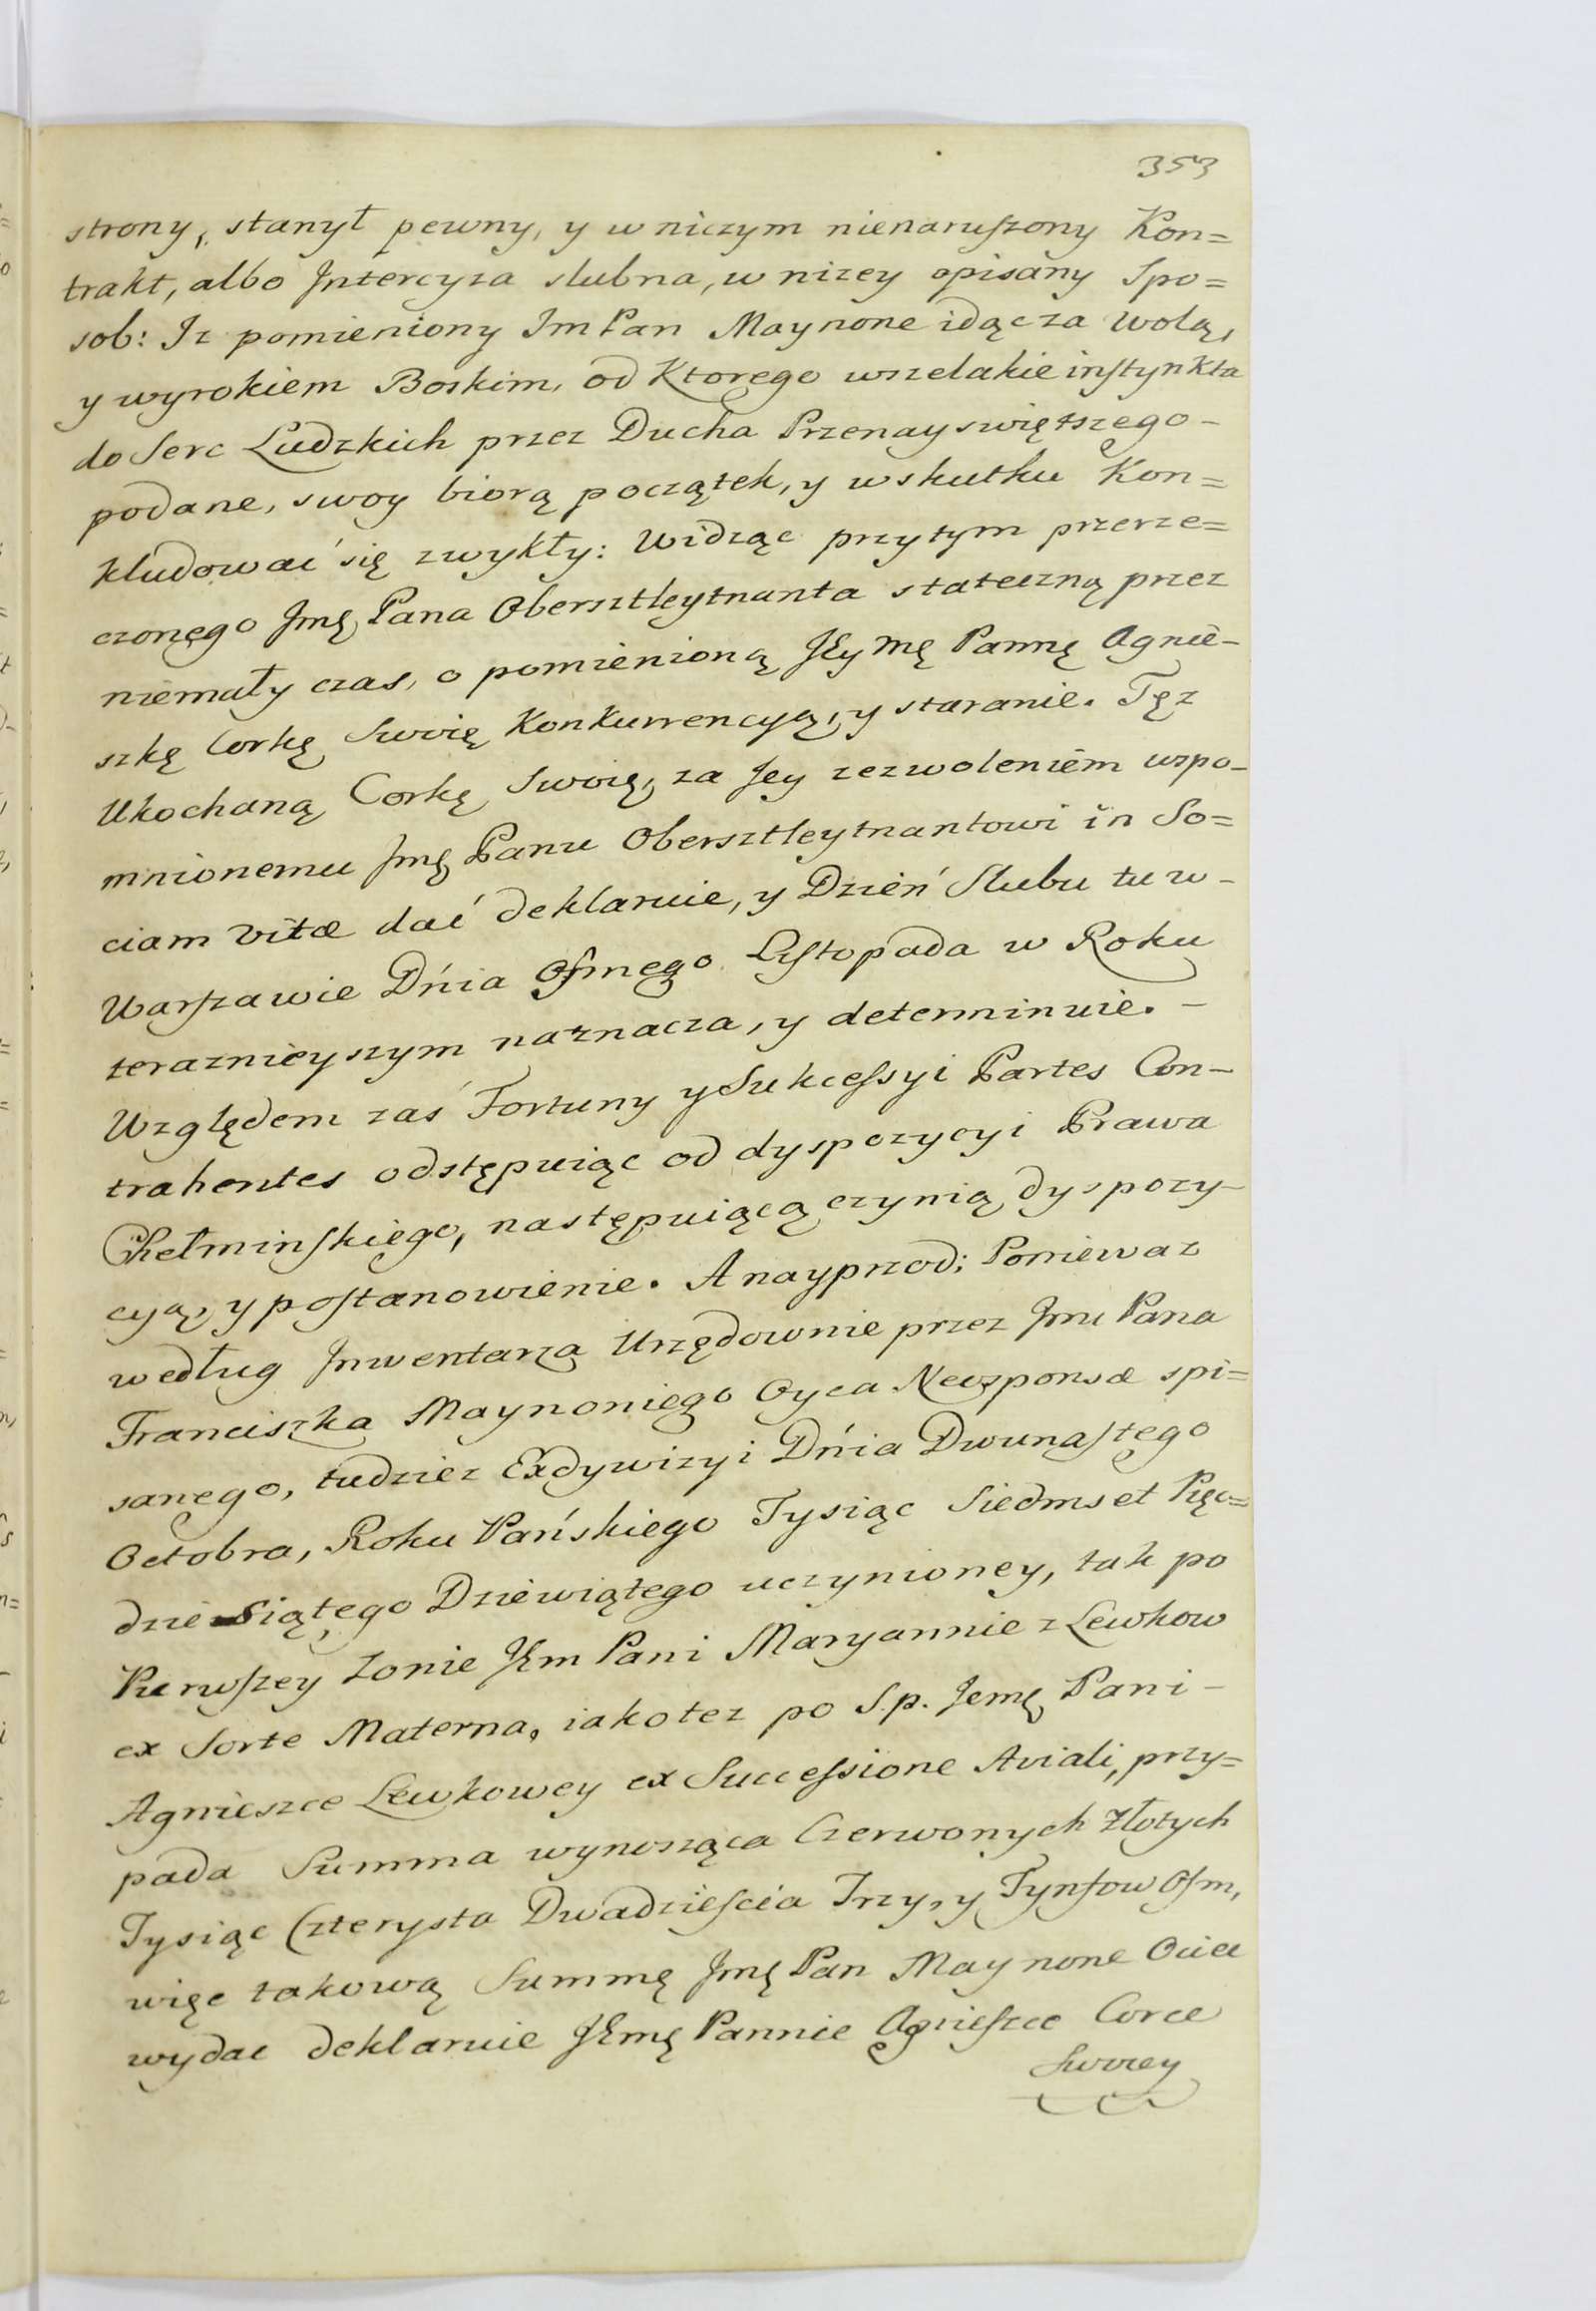 353
strony, stanył pewny, y w niczym nienaruszony Kon=
trakt, albo Intercyza slubna, w nizey opisany Spo=
sob: Iz pomieniony Im Pan Maynone idąc za wolą,
y wyrokiem Boskim, od Ktorego wszelakie instynkta
do Serc Ludzkich przez Ducha Przenayswiętszego -
podane, swoy biorą początek, y w skutku Kon=
kludować się zwykły: Widząc przytym przerze=
czonego Jmę Pana Obersztleytnanta stateczną przez
niemały czas, o pomienioną JEymę Pannę Agnie-
szkę Corkę Swoię Konkurrencyą, y staranie. Tęz
Ukochaną Corkę Swoię, za Jey zezwoleniem wspo-
mnionemu Jmę Panu Obersztleytnantowi in So=
ciam vitæ dać deklaruie, y Dzień Slubu tu w -
Warszawie Dńia Osmego Listopada w Roku
teraznieyszym naznacza, y determinuie. -
Względem zaś Fortuny y Sukcessyi Partes Con-
trahentes odstępuiąc od dyspozycyi Prawa
Chełminskiego, następuiącą czynią dyspozy-
cyą, y postanowienie. A nayprzod; Poniewaz
według Inwentarza Urzędownie przez Jmci Pana
Franciszka Maynoniego Oyca Neosponsæ spi=
sanego, tudziez Exdywizyi Dńia Dwunastego
Octobra, Roku Pańskiego Tysiąc Siedmset Pięc=
dziesiątego Dziewiątego uczynioney, tak po
Pierwszey Zonie JEm Pani Maryannie z Lewkow
ex Sorte Materna, iakotez po S.p. Jemę Pani -
Agnieszce Lewkowey ex Successione Aviali, przy=
pada Summa wynosząca Czerwonych Złotych
Tysiąc Czterysta Dwadziescia Trzy, y Tynfow Osm,
więc takową Summę Jmę Pan Maynone Ociec
wydać deklaruie JEmę Pannie Agnieszce Corce
Swoiey